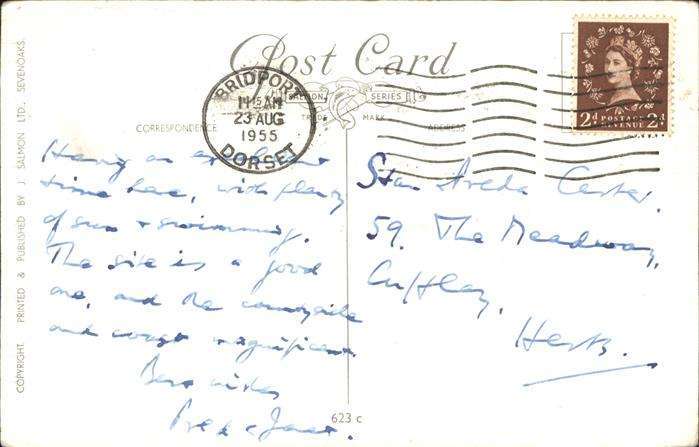 Post Card
SALMON SERIES
TRADE MARK
CORRESPONDENCE
ADDRESS
BRIDPORT
11 15 AM
23 AUG
1955
DORSET
2d POSTAGE REVENUE 2d
Having an excellent
time here, with plenty
of sun & swimming.
The site is a good
one, and the countryside
and coast magnificent
Best wishes
59. The Meadway,
Cuffley,
Herts.
COPYRIGHT. PRINTED & PUBLISHED BY J SALMON LTD., SEVENOAKS.
623 c